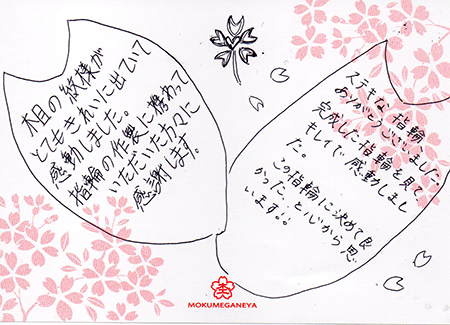 ステキな指輪
ありがとうございました。
完成した指輪を見て
キレイで感動しまし
た。
この指輪に決めて良
かった、と心から思
います!!
木目の紋様が
とてもきれいに出ていて
感動しました。
指輪の作製に携わって
いただいた方々に
感謝します。
MOKUMEGANEYA